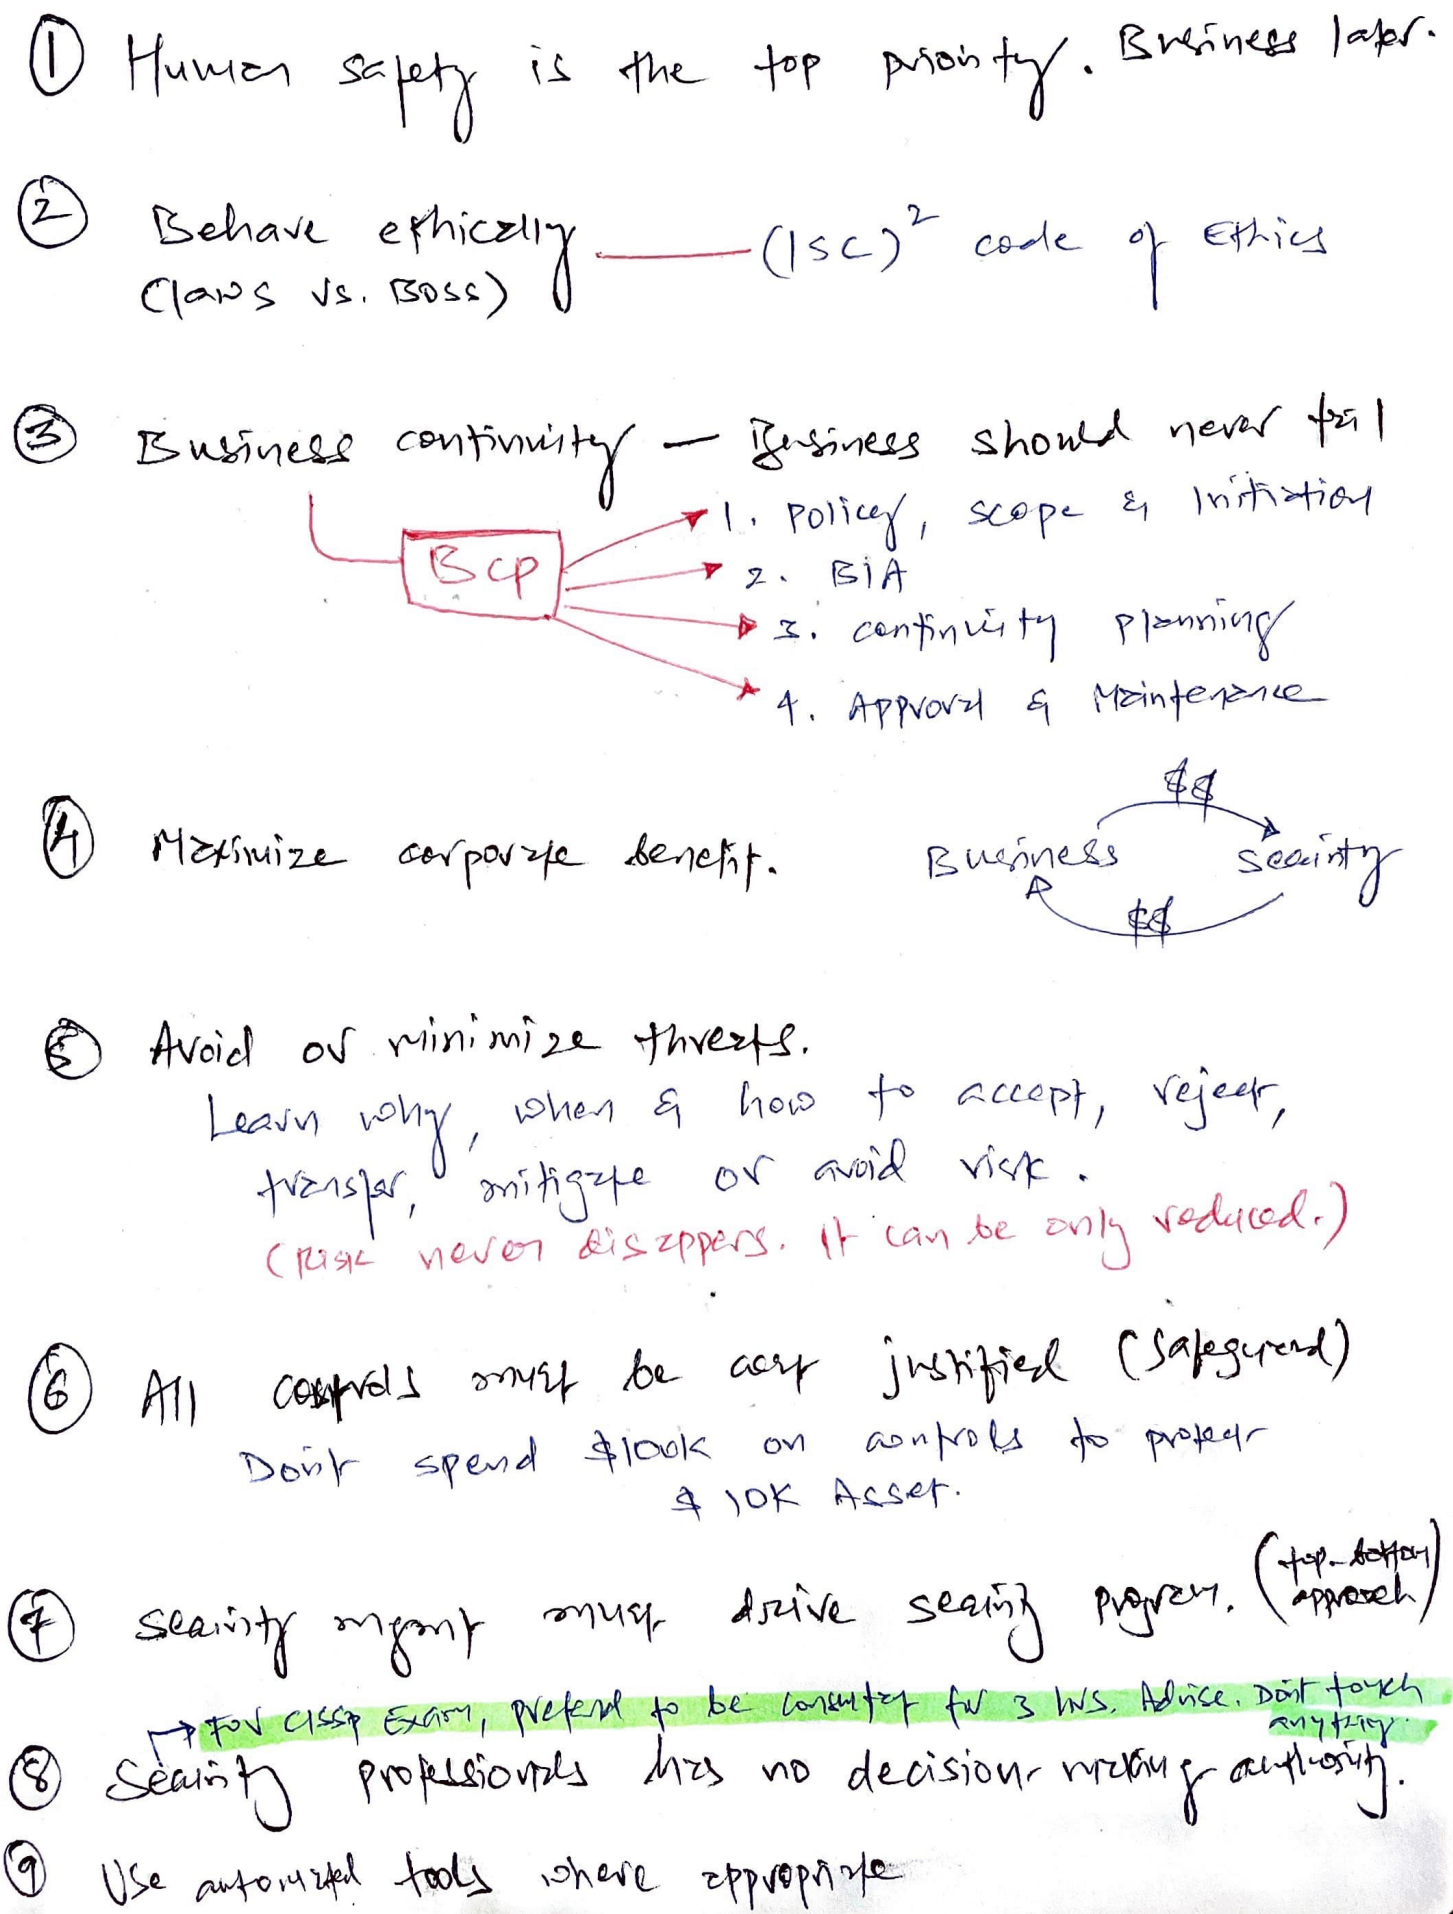 ① Human safety is the top priority. Business later.
② Behave ethically — (ISC)² code of Ethics
(laws vs. Boss)
③ Business continuity — Business should never fail
BCP
1. Policy, scope & Initiation
2. BIA
3. continuity planning
4. Approval & Maintenance
$$
④ Maximize corporate benefit. Business Security
$$
⑤ Avoid or minimize threats.
Learn why, when & how to accept, reject,
transfer, mitigate or avoid risk.
(Risk never disappers. It can be only reduced.)
⑥ All controls must be cost justified (safeguard)
Don't spend $100K on controls to protect
$10K Asset.
⑦ Security mgmt must drive security program. (top-bottom approach)
→ For CISSP Exam, pretend to be consultat for 3 hrs. Advise. Don't touch
anything.
⑧ Security professionals has no decision-making authority.
⑨ Use automated tools where appropriate